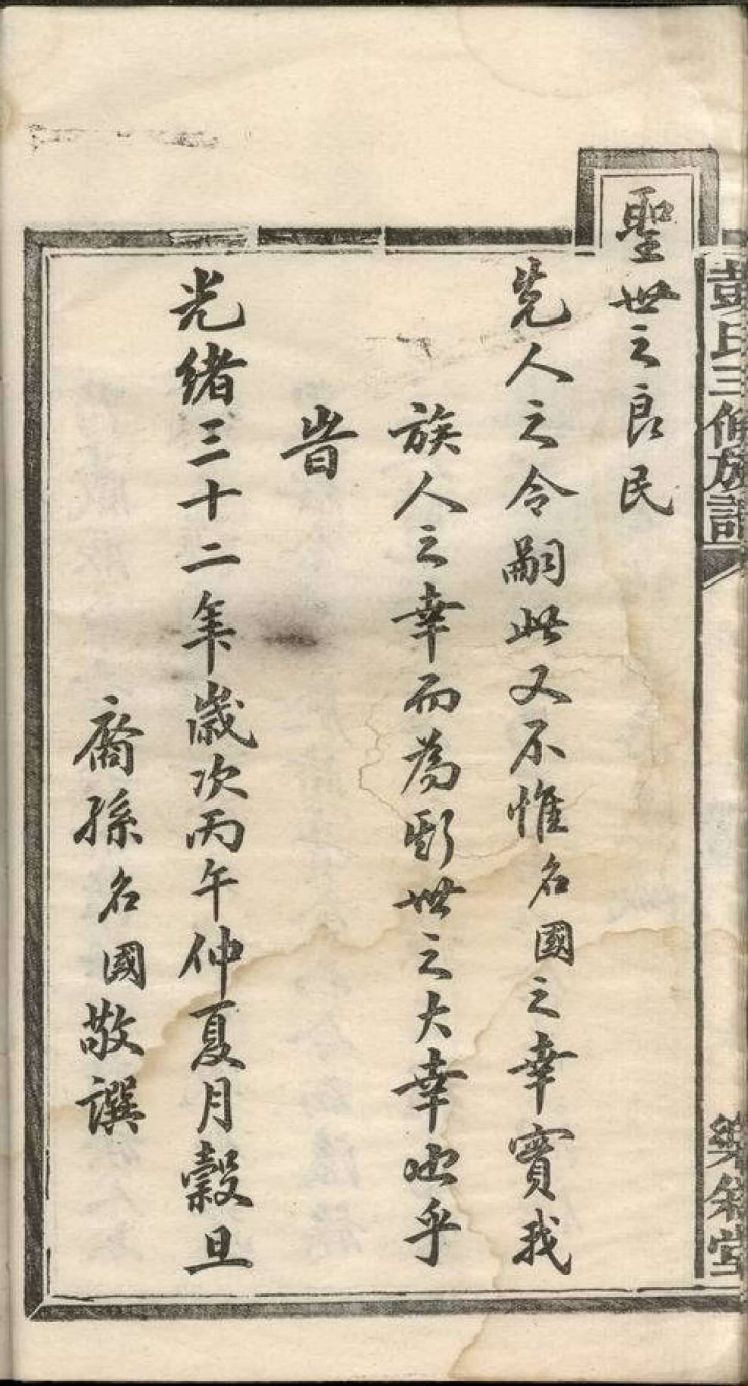 黃氏三修族譜
聖世之良民
先人之令嗣此又不惟名國之幸實我
族人之幸而為斯世之大幸也乎
旹
光緒三十二年歲次丙午仲夏月穀旦
裔孫名國敬譔